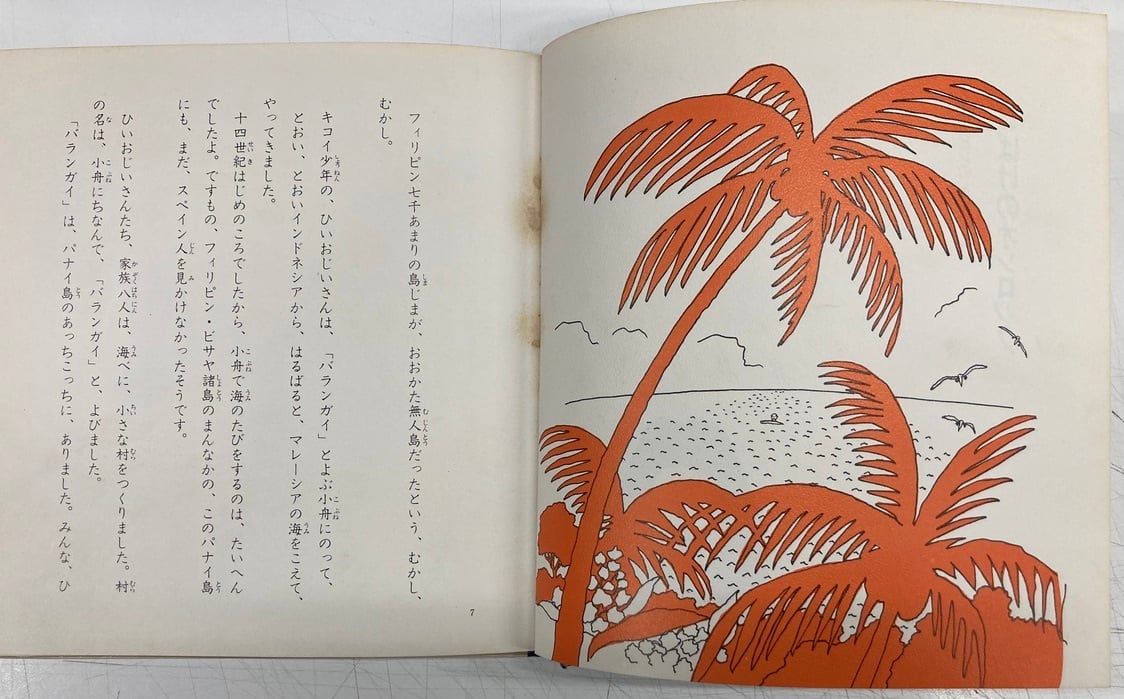 フィリピン七千あまりの島じまが、おおかた無人島だったという、むかし、
むかし。
キコイ少年の、ひいおじいさんは、「バランガイ」とよぶ小舟にのって、
とおい、とおいインドネシアから、はるばると、マレーシアの海をこえて、
やってきました。
十四世紀はじめのころでしたから、小舟で海のたびをするのは、たいへん
でしたよ。ですもの、フィリピン・ビサヤ諸島のまんなかの、このパナイ島
にも、まだ、スペイン人を見かけなかったそうです。
ひいおじいさんたち、家族八人は、海べに、小さな村をつくりました。村
の名は、小舟にちなんで、「バランガイ」と、よびました。
「バランガイ」は、パナイ島のあっちこっちに、ありました。みんな、ひ
7